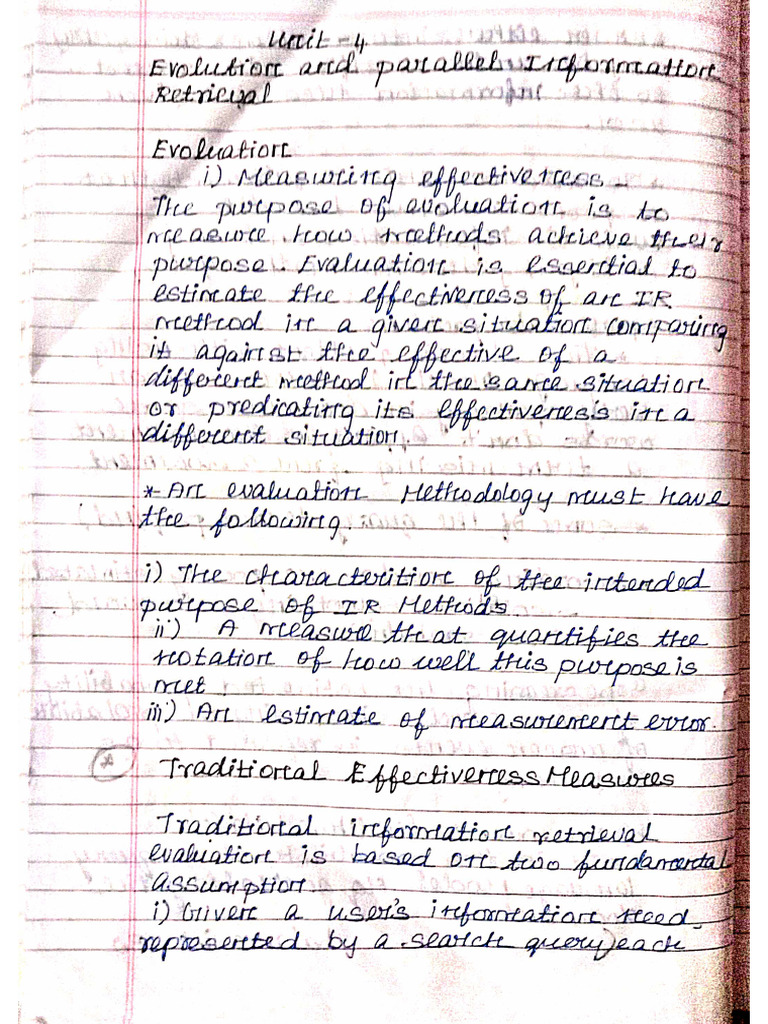 Unit - 4
Evolution and parallel Information
Retrieval
Evoluation
i) Measuring effectiveness -
The purpose of evoluation is to
measure how methods achieve their
purpose. Evaluation is essential to
estimate the effectiveness of an IR
method in a given situation comparing
it against the effective of a
different method in the same situation
or predicating its effectiveness in a
different situation.
* An evaluation Methodology must have
the following.
i) The characterition of the intended
purpose of IR Methods.
ii) A measure that quantifies the
notation of how well this purpose is
met.
iii) An estimate of measurement error.
* Traditional Effectiveness Measures
Traditional information retrieval
evaluation is based on two fundamental
assumption.
i) Given a user's information need,
represented by a search query, each